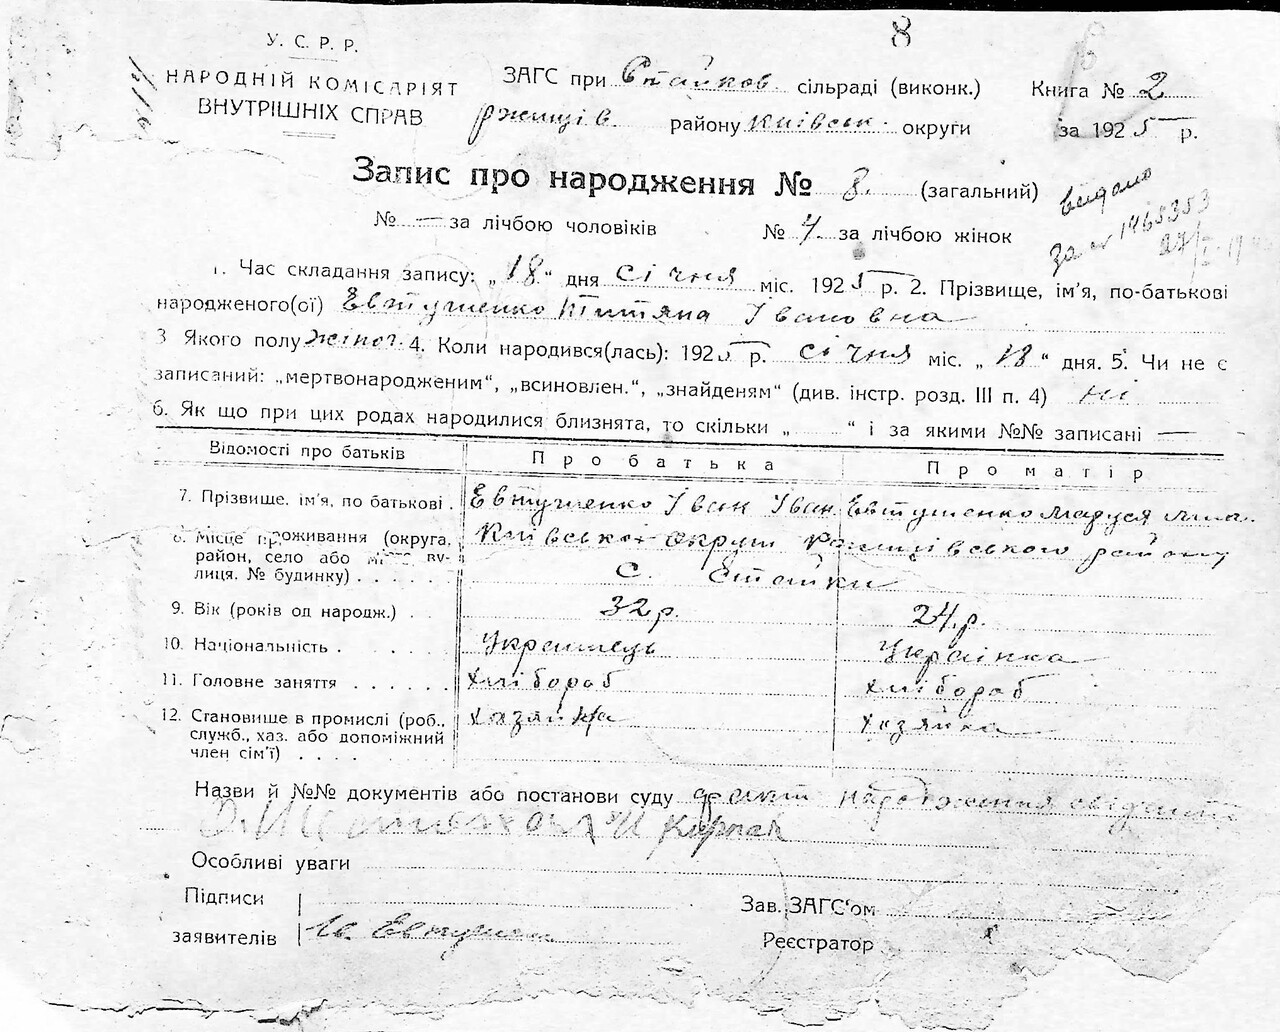 8
У. С. Р. Р.
НАРОДНІЙ КОМІСАРІЯТ
ВНУТРІШНІХ СПРАВ
ЗАГС при Стайков. сільраді (виконк.) Книга № 2
Ржищів. району Київськ. округи за 1925 р.
Запис про народження № 8. (загальний)
видано
№ — за лічбою чоловіків № 4. за лічбою жінок
за № 1965353
1. Час складання запису: „18“ дня січня міс. 1925 р. 2. Прізвище, ім'я, по-батькові
народженого(ої) Евтушенко Титяна Івановна
3 Якого полу жіноч. 4. Коли народився(лась): 1925 р. січня міс. „18“ дня. 5. Чи не є
записаний: „мертвонародженим“, „всиновлен.“, „знайденям“ (див. інстр. розд. III п. 4) ні
6. Як що при цих родах народилися близнята, то скільки „ “ і за якими №№ записані —
Відомості про батьків Про батька Про матір
7. Прізвище. ім'я, по батькові . Евтушенко Іван Іван Евтушенко Маруся
8. Місце проживання (округа, район, село або місто, вулиця. № будинку) . . . . . Київської округи Ржищівського району
с. Стайки
9. Вік (років од народж.) . 32 р. 24. р.
10. Національність . . . . . Українець Українка
11. Головне заняття . . . . . . хлібороб хлібороб
12. Становище в промислі (роб., служб., хаз. або допоміжний член сім'ї) . . . . хазяйка
Назви й №№ документів або постанови суду факт народження свідчит
Карпан
Особливі уваги
Підписи
заявителів Ів. Евтушен
Зав. ЗАГС'ом
Реєстратор